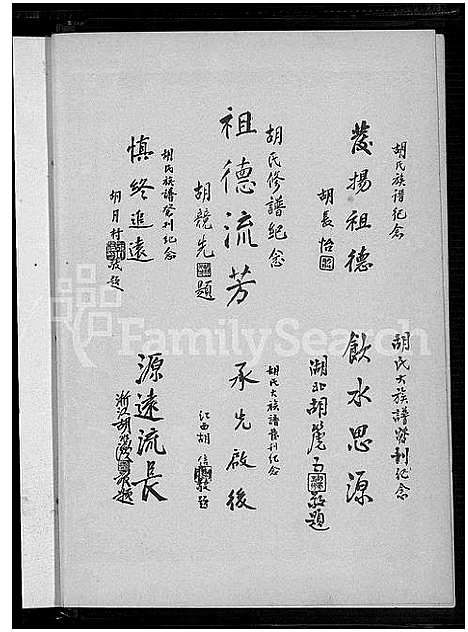 胡氏族譜紀念
發揚祖德
胡長怡
胡氏大族譜發刊紀念
飲水思源
湖北胡
敬題
胡氏修譜紀念
祖德流芳
胡競先
題
胡氏大族譜發刊紀念
承先啟後
江西胡信
敬題
胡氏族譜發刊紀念
慎終追遠
胡月村
敬題
源遠流長
浙江胡
敬題
FamilySearch